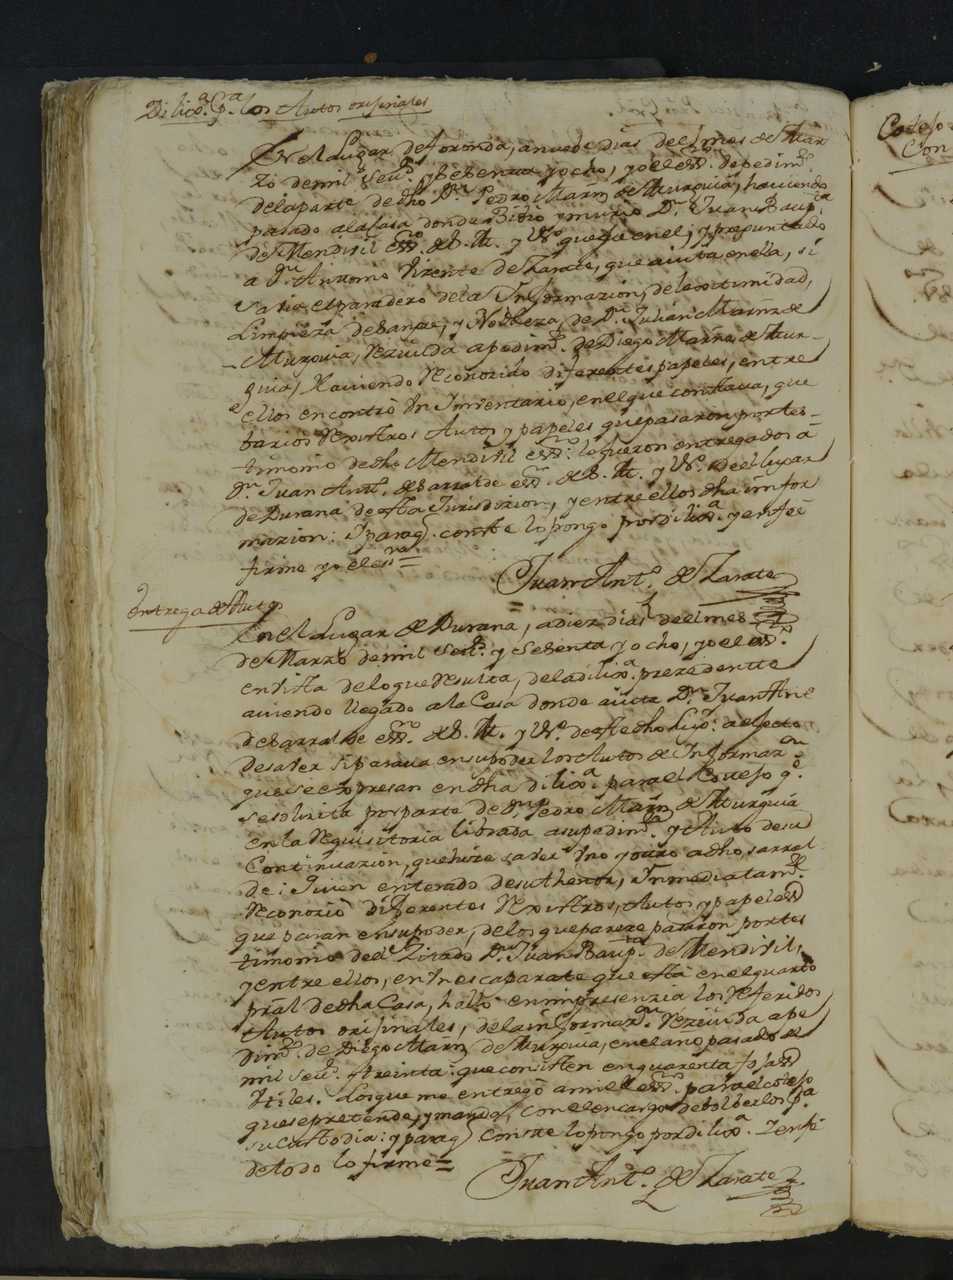 Dilixª. pª. los Autos orijinales
En el Lugar de foronda, a nuebe dias del mes de Mar
zo de mil Settº. y Sesenta y ocho, yo el essnº. de pedimtº.
de la parte de dho Dn. Pedro Marñ de Murguia, haviendo
pasado a la Casa donde Bibio y murio Dn. Juan Baupta.
de Mendivil essnº. de S. M. y Nº. que fue en el, y preguntado
a Dn. Antonio Vizente de Zarate, que avita en ella, si
savia el paradero de la Informazion, de lexitimidad,
Limpieza de Sangre, y Nobleza, de Dn. Julian Marñz de
Murguia, Rezivida a pedimtº. de Diego Marñz de Mur-
guia, Haviendo Reconozido diferentes papeles, entre
ellos encontrò Un Imventario, en el que constava, que
barios Rexistros Autos y papeles que pasaron por tes-
timonio de dho Mendivil essnº. le fueron entregados a
Dn. Juan Antº. de Sarralde essnº. de S. M. y Nº. del lugar
de Durana de esta Jurisdizion, y entre ellos dha imfor
mazion: I para q conste lo pongo por dilixª. y en fee
firme yo el essnº =
Juan Antº. de Zarate
Entrega de Autos
En el Lugar de Durana, a diez dias del mes
de Marzo de mil Settº. y Sesenta y ocho, yo el essnº.
en vista de lo que resulta, de la dilixª. prezedentte
aviendo llegado a la Casa donde avita Dn. Juan Antº
de Sarralde essnº. de S. M. y Nº. de este dho Lugr. a efecto
de saver si parava en su poder los Autos de Informazon
que se expresan en dha dilixª. para el Cotejo qe.
se solizita por parte de Dn. Pedro Marñ de Murguia
en la Requisitoria librada a su pedimtº. y Auto de su
Continuazion, que hize saver Uno y otro a dho Sarral
de: Quien enterado de su thenor, Inmediatamte.
Reconoziò diferentes Rexistros, Autos, y papeles
que paran en su poder, de los que pareze pasaron por tes
timonio del Zitado Dn. Juan Baupta. de Mendivil,
y entre ellos, en Un escaparate que està en el quarto
pral de dha Casa, hallò en mi presenzia los referidos
Autos orijinales, de la informazon. Rezivida a pe
dimtº. de Diego Marñ de Murguia, en el ano pasado de
mil Settº. treinta: que consisten en quarenta fojas
Utiles. Los que me entregò a mi el essnº. para el cotejo
que se pretende, y manda, con el encargo de bolberlos pª.
su Custodia: y para q conste lo pongo por dilixª. I en fe
de todo lo firme =
Juan Antº. de Zarate
Cotejo
Con